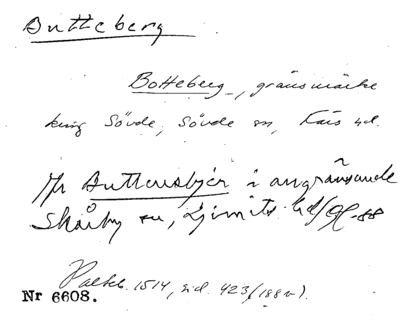 Butteberg
Botteberg, gränsmärke
kring Sövde, Sövde sn, Färs hd.
Jfr Buttensbjer i angränsande
Skårby sn, Ljunits hd/ -88
Palteb. 1514, sid. 423 (188 v).
Nr 6608.